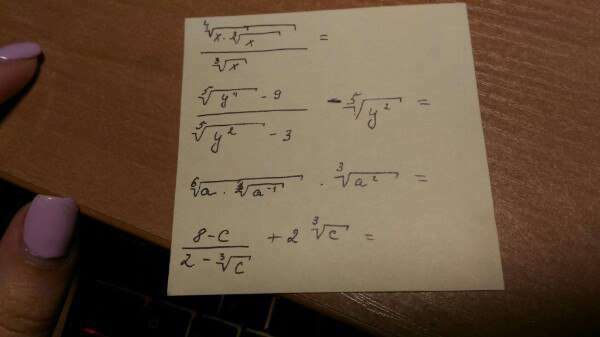 ⁴√(x · ³√x) / ³√x =
(⁵√(y⁴) - 9) / (⁵√(y²) - 3) - ⁵√(y²) =
⁶√(a · ³√(a⁻¹)) · ³√(a²) =
(8 - c) / (2 - ³√c) + 2 ³√c =